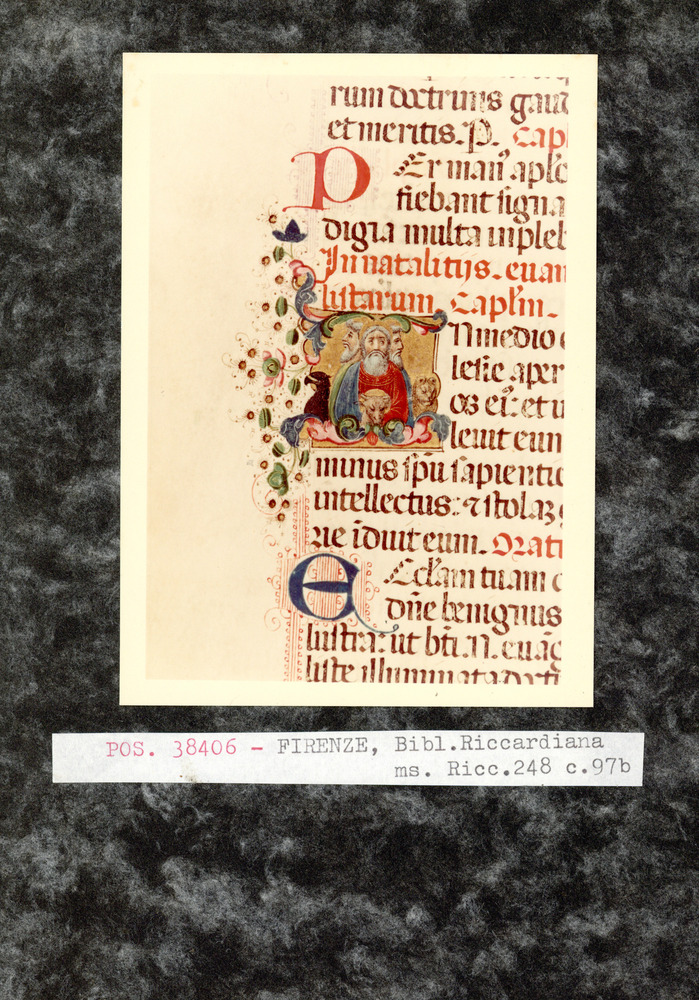 rum doctrinis gaud
et meritis. P. Capl
PEr man᾽ apl̄o
fiebant signa
digia multa inpleb
In natalitijs. euan
listarum. Capl̄m.
IN medio e
lesie aper
os ei᾽: et i
leuit eum
minus sp̄u sapientie
intellectus: ⁊ stolaꝫ g
rie īduit eum. Orati
Ecclām tuam d
dn̄e benignus
lustra: ut bt̄i .N. euāg
liste illuminata docti
POS. 38406 - FIRENZE, Bibl.Riccardiana
ms. Ricc.248 c.97b